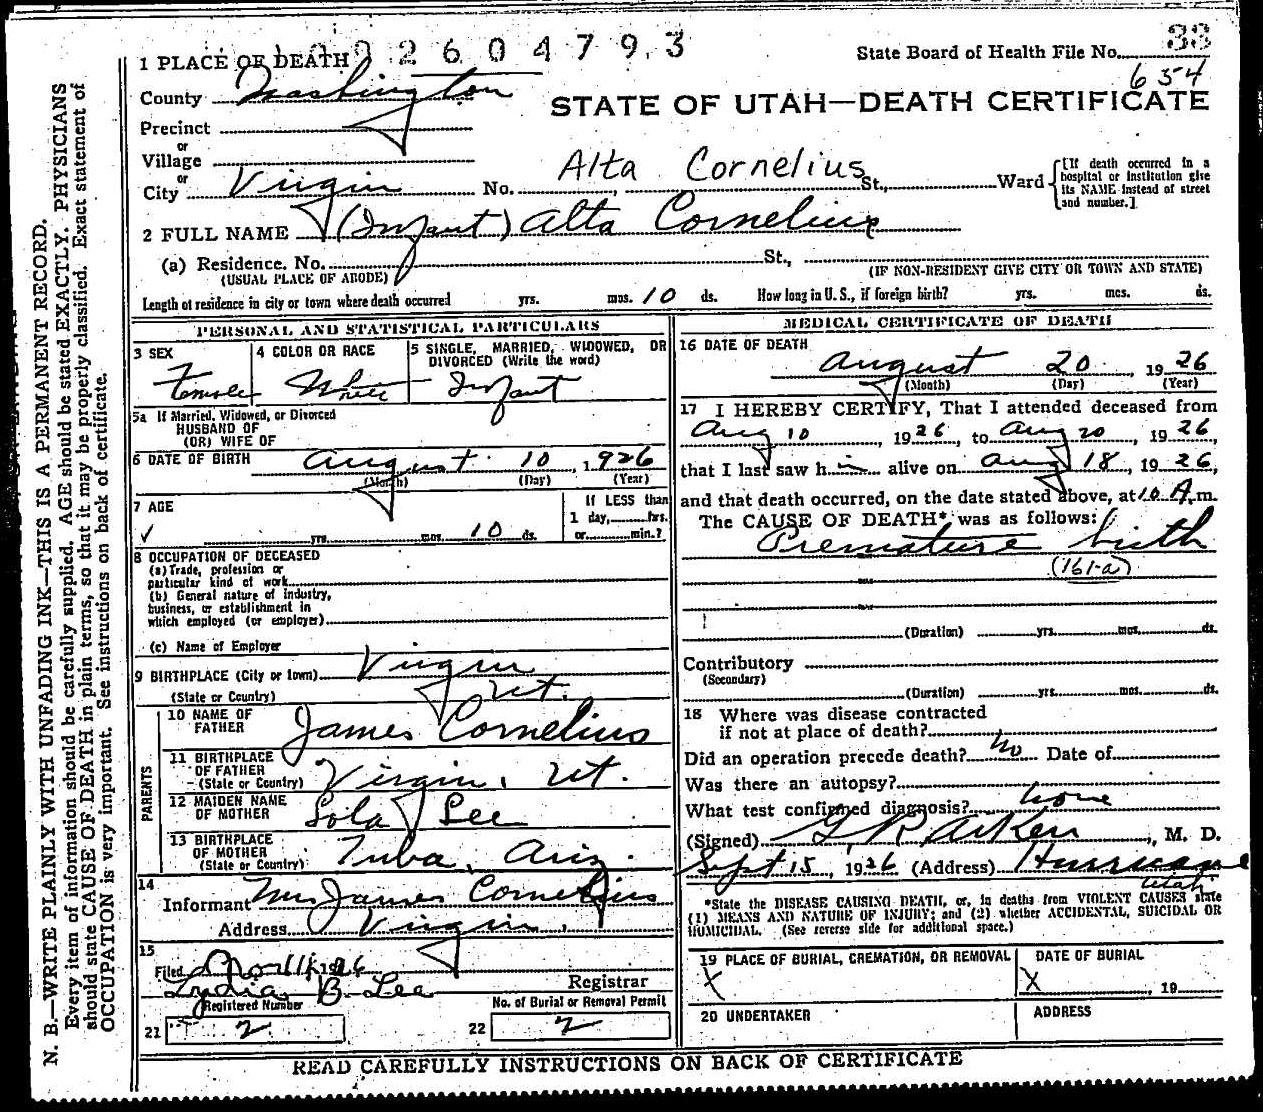 2604793
33
1 PLACE OF DEATH
State Board of Health File No.
654
County Washington
STATE OF UTAH—DEATH CERTIFICATE
Precinct
or
Village
or
City Virgin No. Alta Cornelius St., Ward
[If death occurred in a hospital or institution give its NAME instead of street and number.]
2 FULL NAME (Infant) Alta Cornelius
(a) Residence. No. St.,
(USUAL PLACE OF ABODE) (IF NON-RESIDENT GIVE CITY OR TOWN AND STATE)
Length of residence in city or town where death occurred yrs. mos. 10 ds. How long in U. S., if foreign birth? yrs. mos. ds.
PERSONAL AND STATISTICAL PARTICULARS
3 SEX
Female
4 COLOR OR RACE
White
5 SINGLE, MARRIED, WIDOWED, OR
DIVORCED (Write the word)
Infant
5a If Married, Widowed, or Divorced
HUSBAND OF
(OR) WIFE OF
6 DATE OF BIRTH August 10, 1926
(Month) (Day) (Year)
7 AGE
If LESS than
1 day, hrs.
yrs. mos. 10 ds. or min.?
8 OCCUPATION OF DECEASED
(a) Trade, profession or
particular kind of work
(b) General nature of industry,
business, or establishment in
which employed (or employer)
(c) Name of Employer
9 BIRTHPLACE (City or town) Virgin
(State or Country) Ut.
PARENTS
10 NAME OF
FATHER James Cornelius
11 BIRTHPLACE
OF FATHER
(State or Country) Virgin, Ut.
12 MAIDEN NAME
OF MOTHER Lola Lee
13 BIRTHPLACE
OF MOTHER
(State or Country) Tuba, Ariz.
14
Informant Mrs James Cornelius
Address Virgin,
15
Filed 26
Lydia B. Lee Registrar
Registered Number
21 2
No. of Burial or Removal Permit
22 2
MEDICAL CERTIFICATE OF DEATH
16 DATE OF DEATH
August 20 1926
(Month) (Day) (Year)
17 I HEREBY CERTIFY, That I attended deceased from
Aug 10, 1926, to Aug 20, 1926,
that I last saw h im alive on Aug 18, 1926,
and that death occurred, on the date stated above, at 10 A. m.
The CAUSE OF DEATH* was as follows:
Premature birth
(161-a)
(Duration) yrs. mos. ds.
Contributory
(Secondary)
(Duration) yrs. mos. ds.
18 Where was disease contracted
if not at place of death?
Did an operation precede death? No Date of
Was there an autopsy?
What test confirmed diagnosis? none
(Signed) G R Aiken, M. D.
Sept 15, 1926 (Address) Hurricane
Utah
*State the DISEASE CAUSING DEATH, or, in deaths from VIOLENT CAUSES state
(1) MEANS AND NATURE OF INJURY; and (2) whether ACCIDENTAL, SUICIDAL OR
HOMICIDAL. (See reverse side for additional space.)
19 PLACE OF BURIAL, CREMATION, OR REMOVAL
X
DATE OF BURIAL
X , 19
20 UNDERTAKER
ADDRESS
READ CAREFULLY INSTRUCTIONS ON BACK OF CERTIFICATE
N. B.—WRITE PLAINLY WITH UNFADING INK—THIS IS A PERMANENT RECORD.
Every item of information should be carefully supplied. AGE should be stated EXACTLY. PHYSICIANS
should state CAUSE OF DEATH in plain terms, so that it may be properly classified. Exact statement of
OCCUPATION is very important. See instructions on back of certificate.